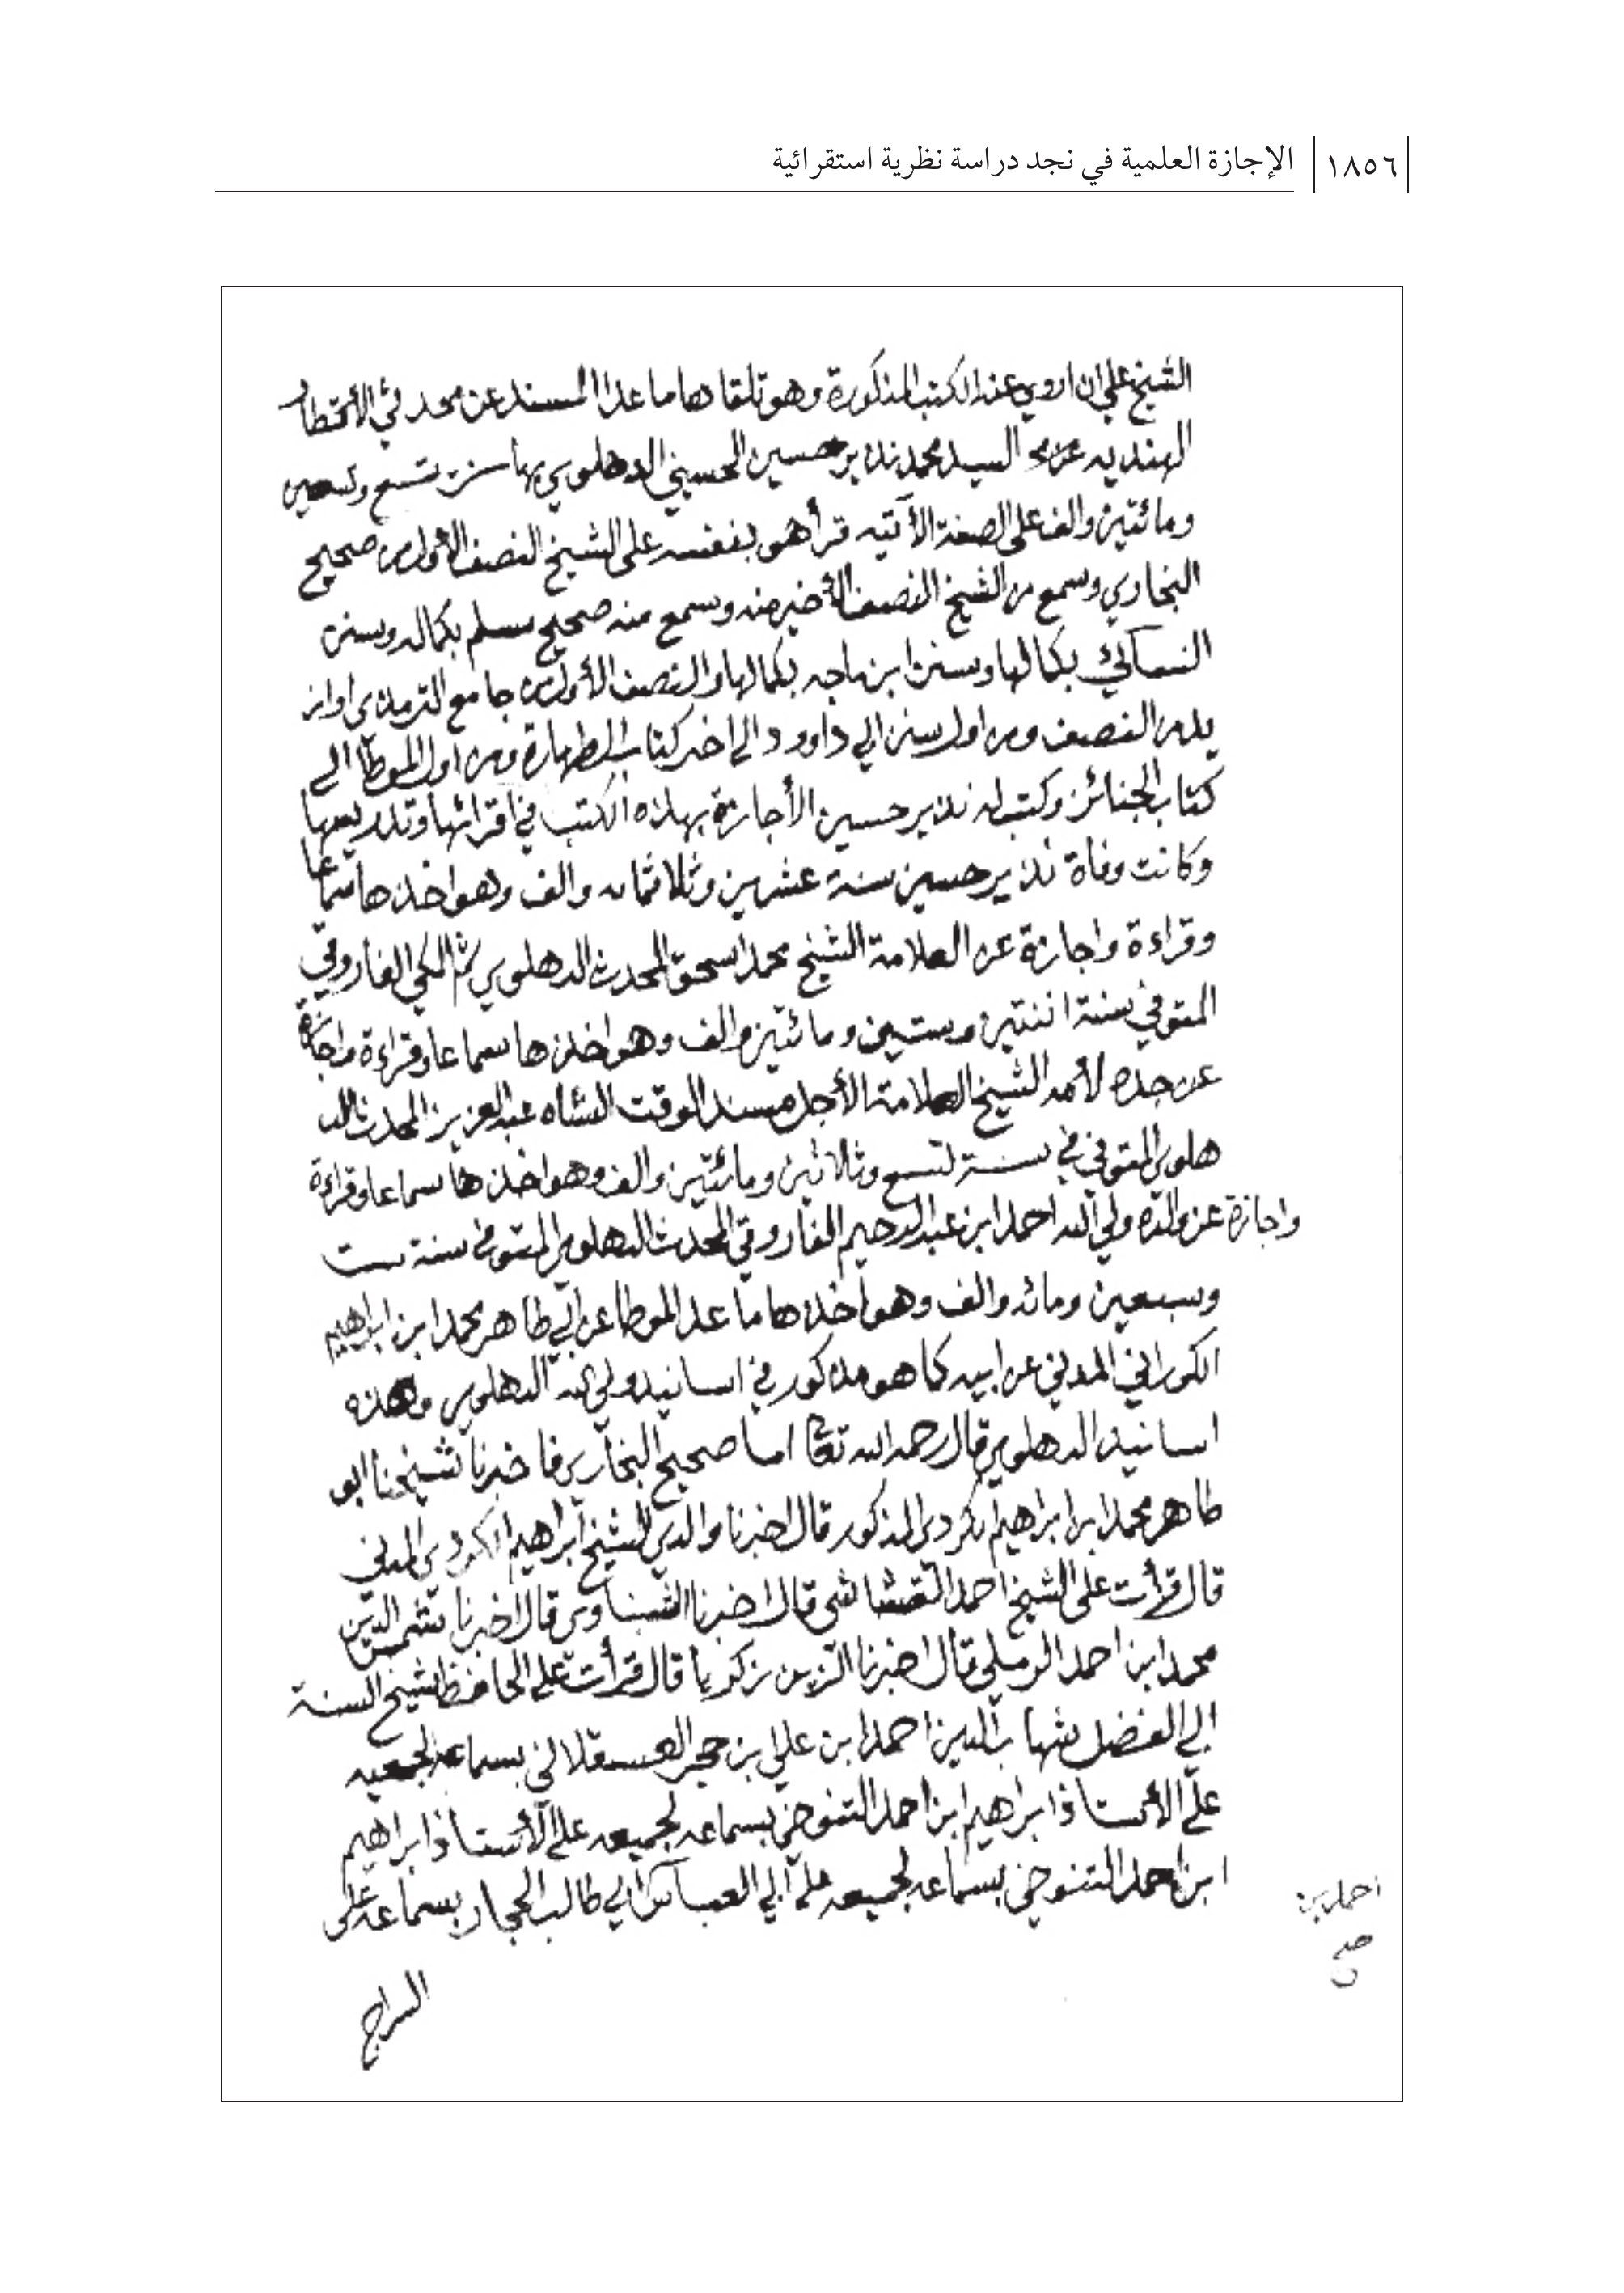 ١٨٥٦ الإجازة العلمية في نجد دراسة نظرية استقرائية
الشيخ علي ان اروي عنه الكتب المذكورة وهو تلقاها ما عدا المسند عن محدثي الأقطار
الهنديه السيد محمد نذير حسين الحسيني الدهلوي بها سنة تسع وتسعين
ومائتين والف على الصفة الآتيه قرأ هو بنفسه على الشيخ النصف الأول من صحيح
البخاري وسمع من الشيخ النصف الأخير منه وسمع منه صحيح مسلم بكماله وسنن
النسائي بكمالها وسنن ابن ماجه بكمالها والنصف الأول من جامع الترمذي او از
يد من النصف ومن اول سنن ابي داوود الى اخر كتاب الطهارة ومن اول الموطأ الى
كتاب الجنائز وكتب له نذير حسين الأجازة بهذه الكتب في اقرائها وتدريسها
وكانت وفاة نذير حسين سنة عشرين وثلاثمائه والف وهو اخذها سماعا
وقراءة واجازة عن العلامة الشيخ محمد اسحق المحدث الدهلوي ثم المكي الفاروقي
المتوفي سنة اثنتين وستين ومائتين والف وهو اخذها سماعا وقراءة واجازة
عن جده لأمه الشيخ العلامة الأجل مسند الوقت الشاه عبد العزيز المحدث الد
هلوي المتوفي في سنة تسع وثلاثين ومائتين والف وهو اخذها سماعا وقراءة
واجازة عن والده ولي الله احمد ابن عبد الرحيم الفاروقي المحدث الدهلوي المتوفى سنة ست
وسبعين ومائه والف وهو اخذها ما عدا الموطا عن ابي طاهر محمد ابن ابراهيم
الكوراني المدني عن ابيه كما هو مذكور في اسانيد ولي الله الدهلوي وهذه
اسانيد الدهلوي قال رحمه الله تعا اما صحيح البخاري فاخبرنا شيخنا ابو
طاهر محمد ابن ابراهيم الكردي المذكور قال اخبرنا والدي الشيخ ابراهيم الكردي المدني
قال قرأت على الشيخ احمد القشاشي قال اخبرنا الشناوي قال اخبرنا شمس الدين
محمد ابن احمد الرملي قال اخبرنا الزين زكريا قال قرأت على الحافظ شيخ السنة
ابي الفضل شهاب الدين احمد ابن علي بن حجر العسقلاني بسماعه لجميعه
على الأستاذ ابراهيم ابن احمد التنوخي بسماعه لجميعه على الأستاذ ابراهيم
ابن احمد التنوخي بسماعه لجميعه على ابي العباس ابي طالب الحجار بسماعه على
احمد بن
صح
السراج